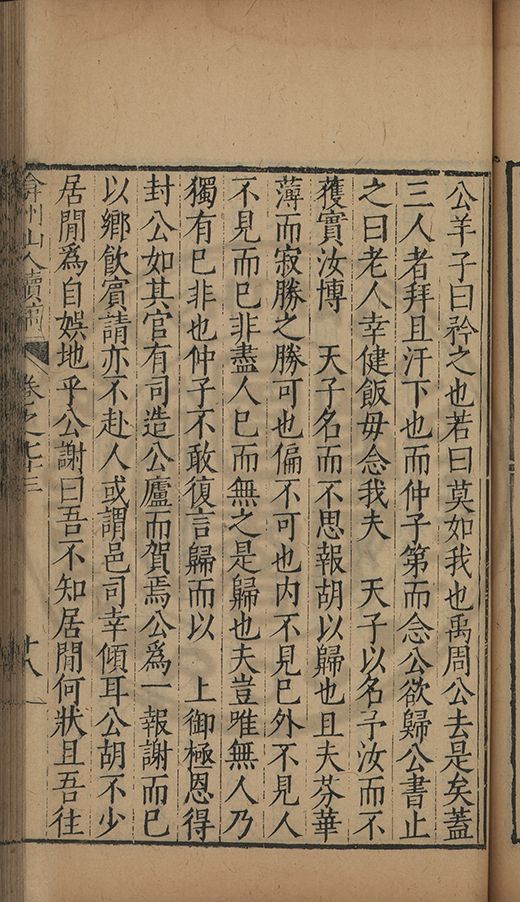 公羊子曰矜之也若曰莫如我也禹周公去是矣蓋
三人者拜且汗下也而仲子第而念公欲歸公書止
之曰老人幸健飯毋念我夫　天子以名予汝而不
獲實汝博　天子名而不思報胡以歸也且夫芬華
薄而寂勝之勝可也偏不可也内不見巳外不見人
不見而巳非盡人巳而無之是歸也夫豈唯無人乃
獨有巳非也仲子不敢復言歸而以　上御極恩得
封公如其官有司造公廬而賀焉公爲一報謝而巳
以鄉飲賓請亦不赴人或謂邑司幸傾耳公胡不少
居閒爲自娱地乎公謝曰吾不知居閒何狀且吾往
弇州山人續稿
卷之七十三
十八